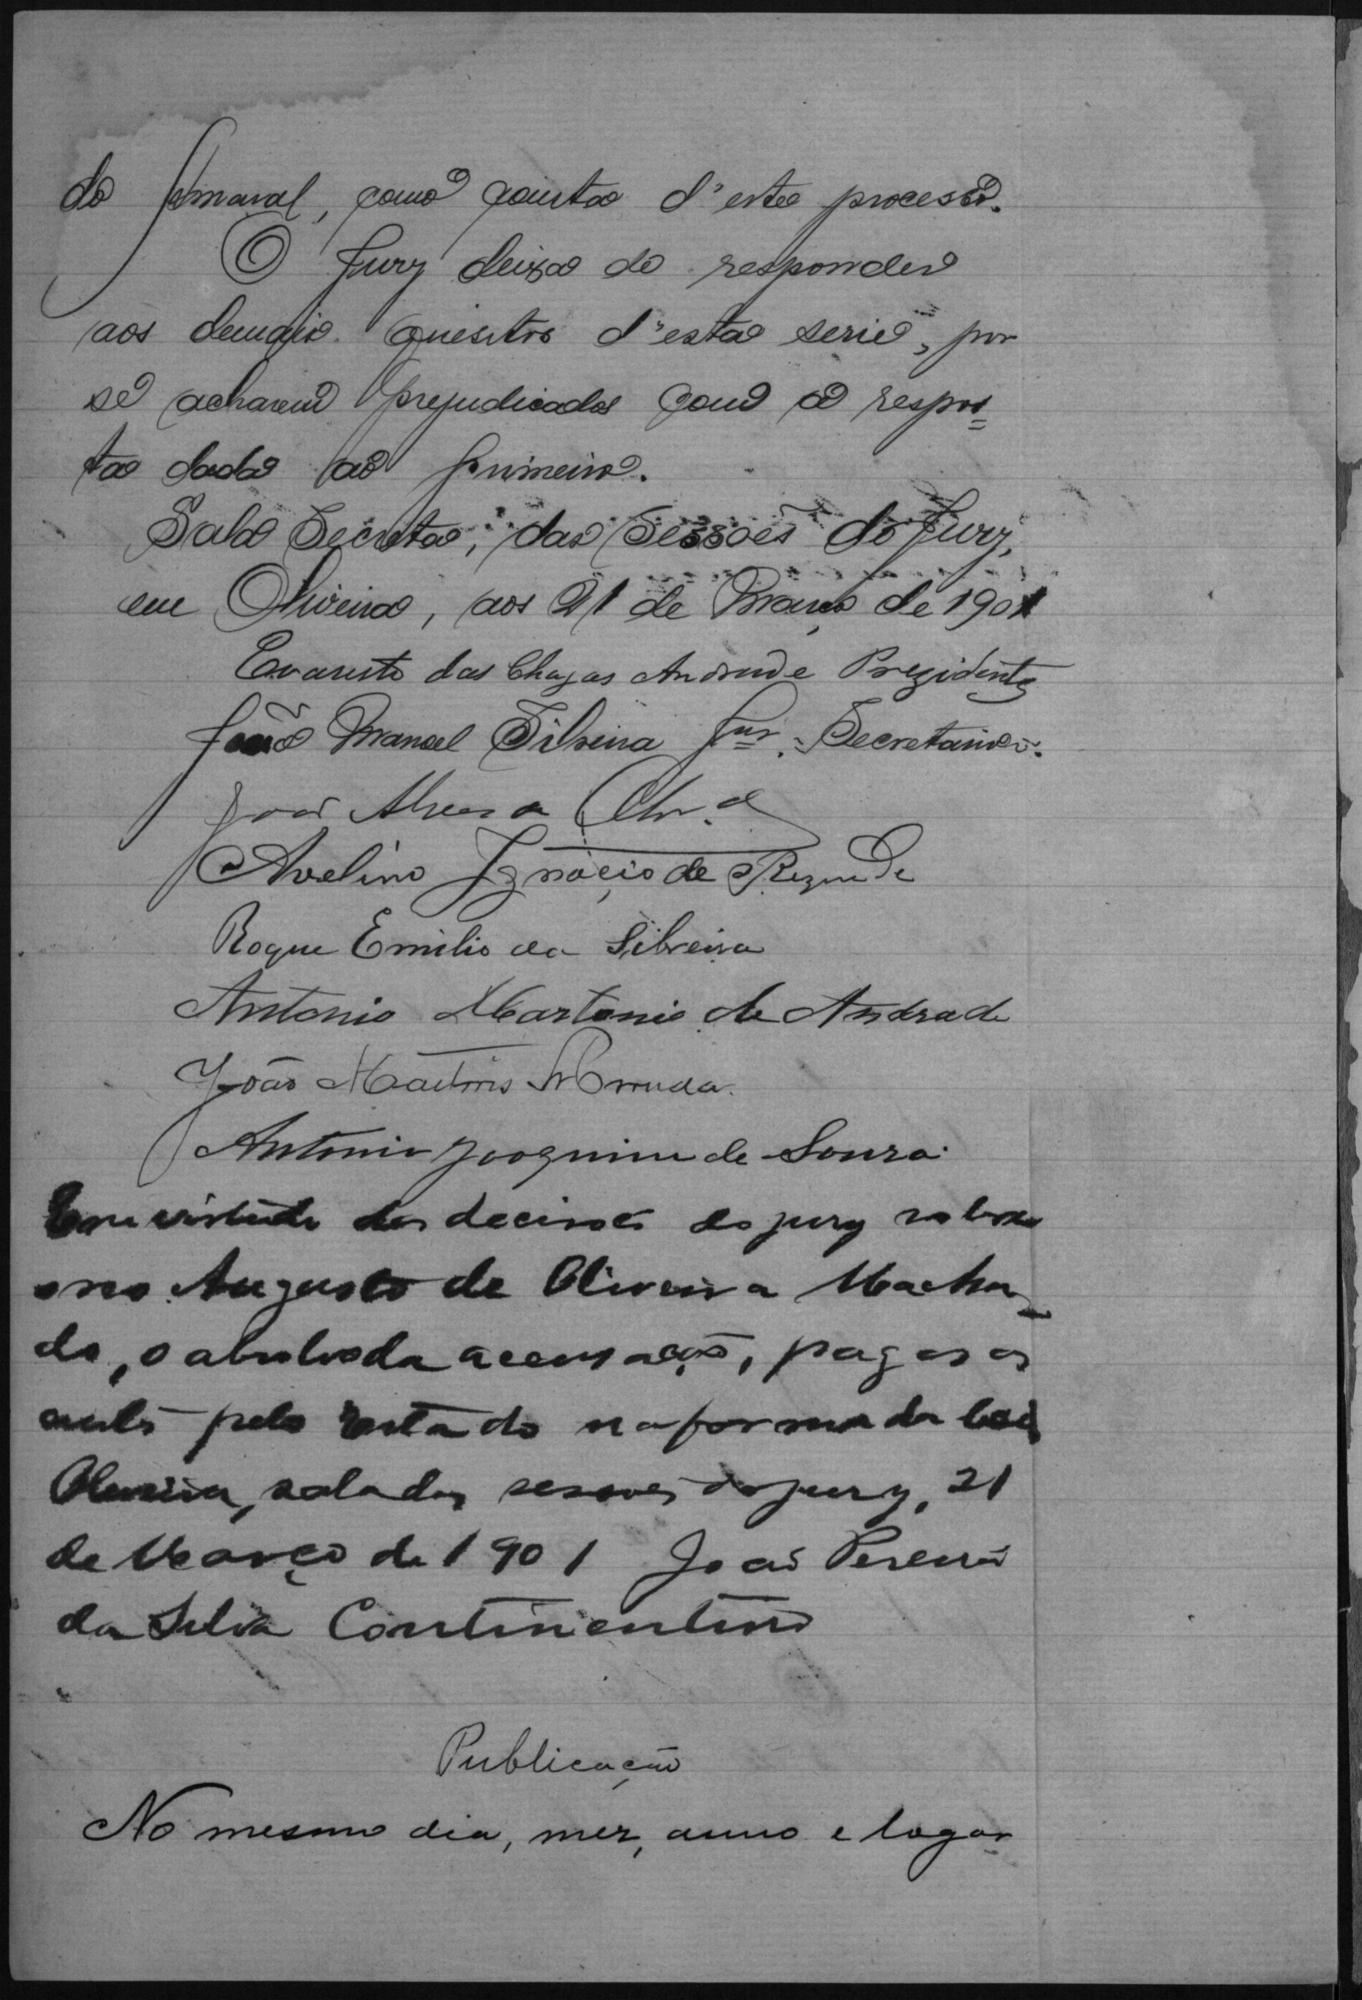 do Amaral, como consta d'este processo.
O Jury deixa de responder
aos demais quesitos d'esta serie, por
se acharem prejudicados com a respos=
ta dada ao primeiro.
Sala Secreta, das Sessões do Jury,
em Oliveira, aos 21 de Março de 1901
Evaristo das Chagas Andrade Prezidente
João Manoel Silveira Jur. Secretario.
João Alves
Avelino Ignacio de Rezende
Roque Emilio da Silveira
Antonio Martonio de Andrade
João Martins Arruda.
Antonio Joaquim de Souza
Em virtude das decisões do jury sobre
o reo Augusto de Oliveira Macha-
do, o absolvo da accusação, pagas as
custas pelo Estado na forma da lei
Oliveira, sala das sessoes do jury, 21
de Março de 1901 João Pereira
da Silva Continentino
Publicação
No mesmo dia, mez, anno e logar